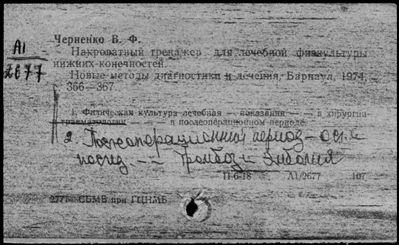 Черненко В. Ф.
А1
2677
Накроватный тренажер для лечебной физкультуры
нижних конечностей.
Новые методы диагностики и лечения, Барнаул, 1974,
366—367
1. Физическая культура лечебная — показания — — в хирургии
травматологии — — в послеоперационном периоде.
2. Послеоперационный период — осл. и
послед. — — Тромбоз и Эмболия
11-6-18 А1/2677 107
277 СБМВ при ГЦНМБ